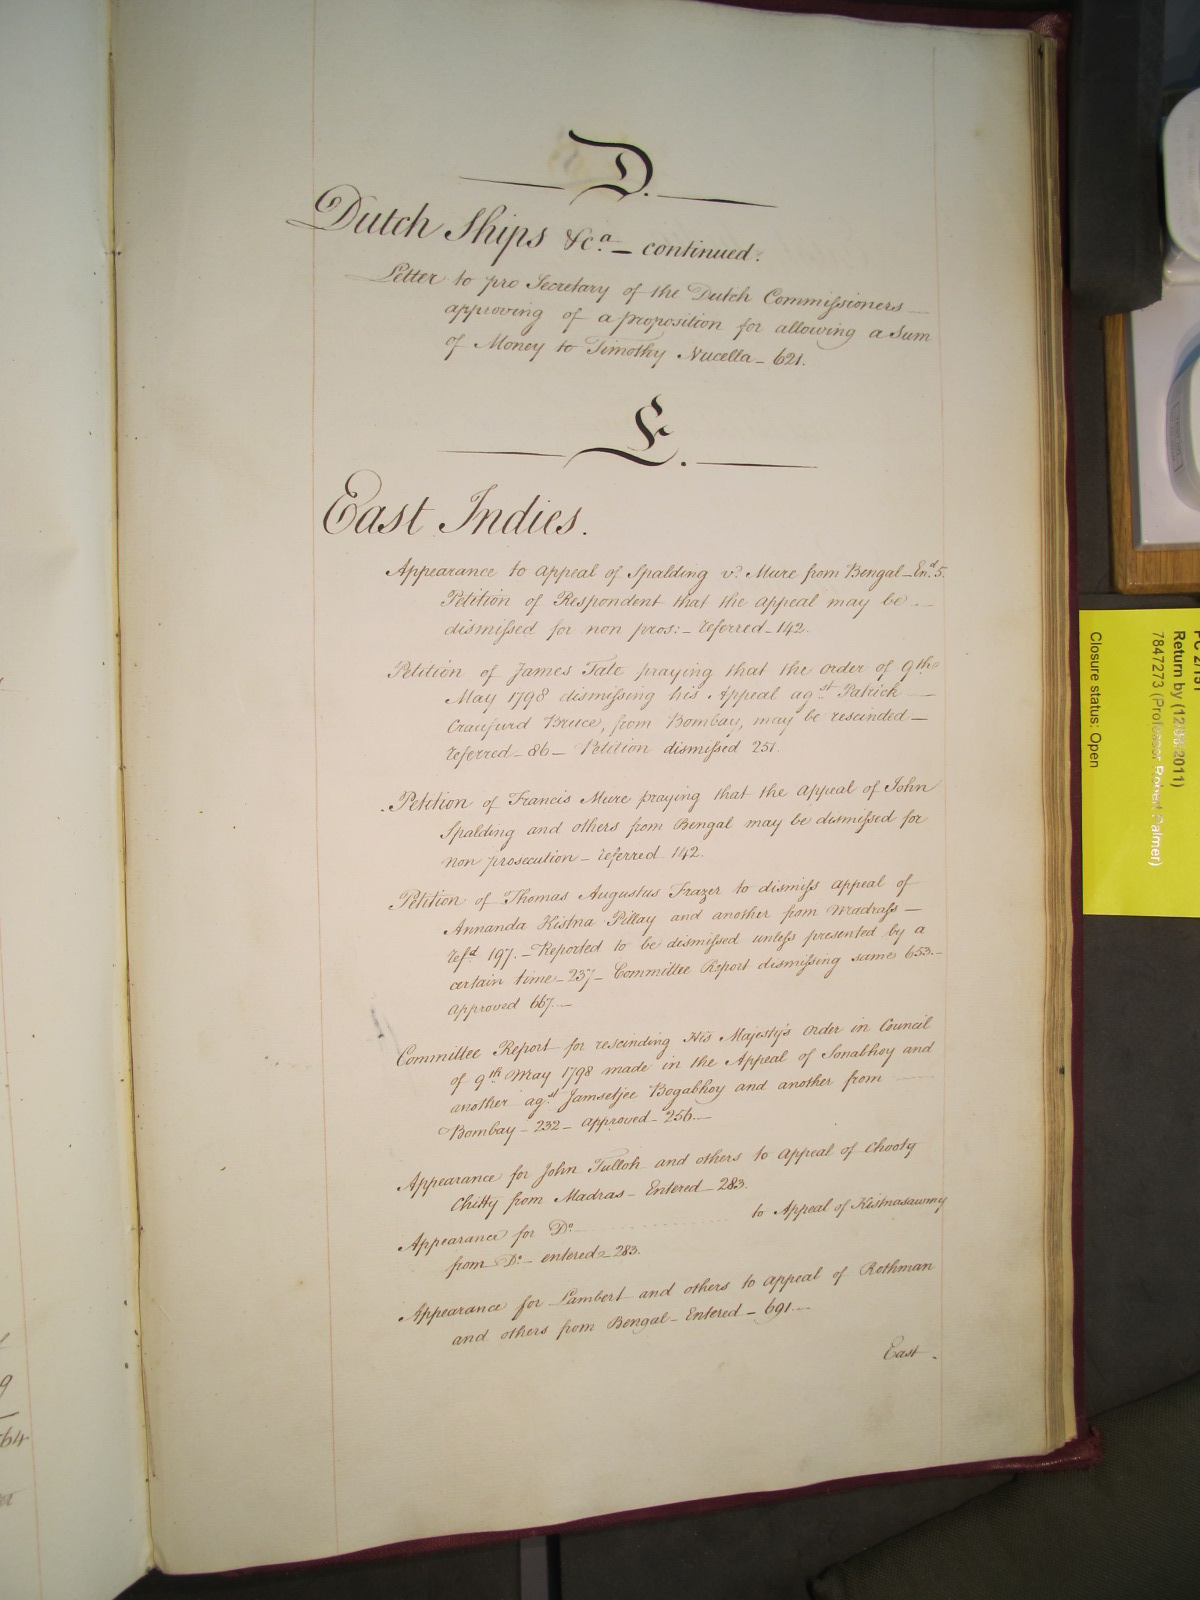 D.
Dutch Ships &c.a — continued.
Letter to pro Secretary of the Dutch Commissioners
approving of a proposition for allowing a Sum
of Money to Timothy Nucella — 621.
E.
East Indies.
Appearance to appeal of Spalding v. Mure from Bengal — En.d 5.
Petition of Respondent that the appeal may be
dismissed for non pros: — referred — 142.
Petition of James Tate praying that the order of 9th
May 1798 dismissing his Appeal ag.st Patrick
Craufurd Bruce, from Bombay, may be rescinded —
referred — 86 — Petition dismissed 251.
Petition of Francis Mure praying that the appeal of John
Spalding and others from Bengal may be dismissed for
non prosecution — referred 142.
Petition of Thomas Augustus Frazer to dismiss appeal of
Annanda Kistna Pillay and another from Madrass —
ref.d 197. — Reported to be dismissed unless presented by a
certain time — 237 — Committee Report dismissing same 653. —
approved 667. —
Committee Report for rescinding His Majesty's order in Council
of 9th May 1798 made in the Appeal of Sonabhoy and
another ag.st Jamsetjee Bogabhoy and another from
Bombay — 232 — approved — 256. —
Appearance for John Tulloh and others to appeal of Chooty
Chitty from Madras — Entered — 283.
Appearance for D.o to Appeal of Kistnasawmy
from D.o — entered — 283.
Appearance for Lambert and others to appeal of Rothman
and others from Bengal — Entered — 691. —
East.
9
564
PC 2/151
Return by (12/08/2011)
7847273 (Professor Robert Palmer)
Closure status: Open